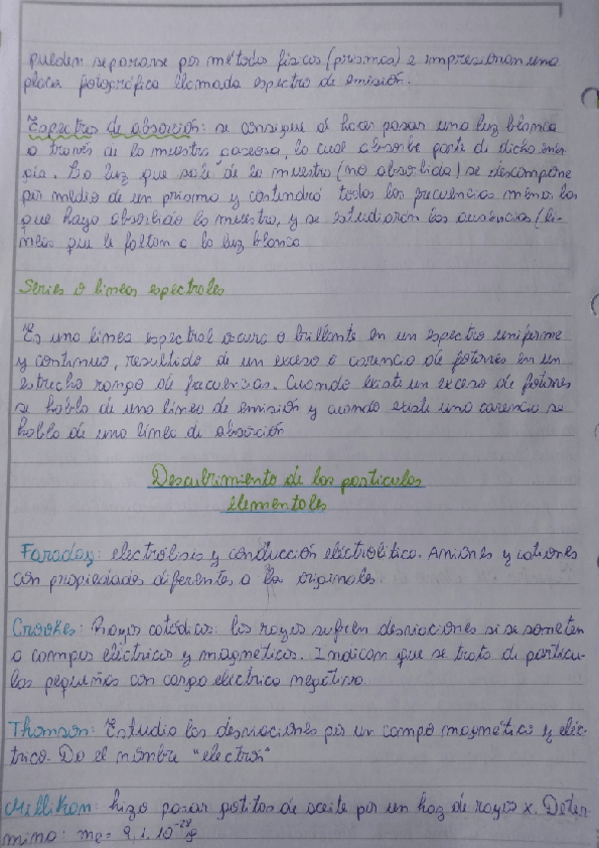 pueden separarse por métodos físicos (prismas) e impresionan una
placa fotográfica llamada espectro de emisión.
Espectros de absorción: se consigue al hacer pasar una luz blanca
a través de la muestra gaseosa, la cual absorbe parte de dicha ener-
gía. La luz que sale de la muestra (no absorbida) se descompone
por medio de un prisma y contendrá todas las frecuencias menos las
que haya absorbido la muestra, y se estudiarán las ausencias (lí-
neas que le faltan a la luz blanca
Series o líneas espectrales
Es una línea espectral oscura o brillante en un espectro uniforme
y continuo, resultado de un exceso o carencia de fotones en un
estrecho rango de . Cuando existe un exceso de fotones
se habla de una línea de emisión y cuando existe una carencia se
habla de una línea de absorción
Descubrimiento de las partículas
elementales
Faraday: electrólisis y conducción electrolítica. Aniones y cationes
con propiedades diferentes a las originales
Crookes: Rayos catódicos: los rayos sufren desviaciones si se someten
a campos eléctricos y magnéticos. Indican que se trata de partícu-
las pequeñas con carga eléctrica negativa
Thomson: Estudio las desviaciones por un campo magnético y eléc-
trico. Da el nombre "electrón"
Millikan: hizo pasar gotitas de aceite por un haz de rayos x. Deter-
mino: me = 9,1.10⁻²⁸g